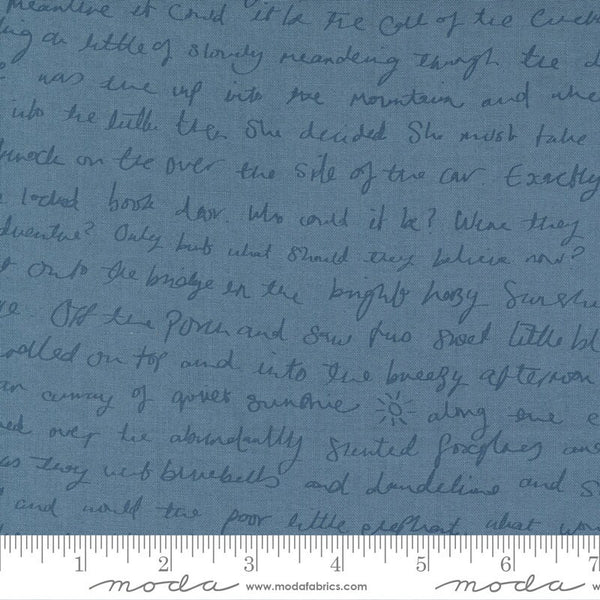 meantime it could it be the call of the
ing on little of slowly meandering through the
was the up into the mountain and whe
into the little then she decided she must take
knock on the over the side of the car. Exactly
e locked book door. Who could it be? Were they
dventure? Only but what should they believe now?
t onto the bridge in the bright hazy sunshi
Off the porch and saw two sweet little bl
olled on top and into the breezy afternoon
an away of quiet sunshine along the e
ed over the abundantly scented foxgloves and
as they with bluebells and dandelions and s
and would the poor little elephant, what won
1 2 3 4 5 6 7
moda www.modafabrics.com moda www.modafabrics.com